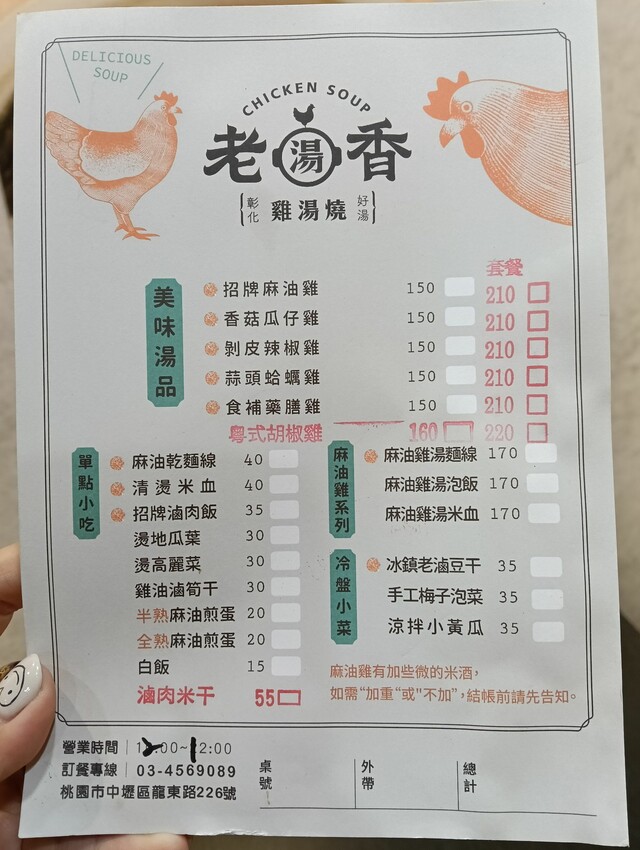 DELICIOUS
SOUP
CHICKEN SOUP
老湯香
彰化 雞湯燒 好湯
套餐
美味湯品
招牌麻油雞 150 210
香菇瓜仔雞 150 210
剝皮辣椒雞 150 210
蒜頭蛤蠣雞 150 210
食補藥膳雞 150 210
粵式胡椒雞 160 220
單點小吃
麻油乾麵線 40
清燙米血 40
招牌滷肉飯 35
燙地瓜葉 30
燙高麗菜 30
雞油滷筍干 30
半熟麻油煎蛋 20
全熟麻油煎蛋 20
白飯 15
滷肉米干 55
麻油雞系列
麻油雞湯麵線 170
麻油雞湯泡飯 170
麻油雞湯米血 170
冷盤小菜
冰鎮老滷豆干 35
手工梅子泡菜 35
涼拌小黃瓜 35
麻油雞有加些微的米酒，
如需“加重“或"不加”，結帳前請先告知。
營業時間｜:00~12:00
訂餐專線｜03-4569089
桃園市中壢區龍東路226號
桌號
外帶
總計